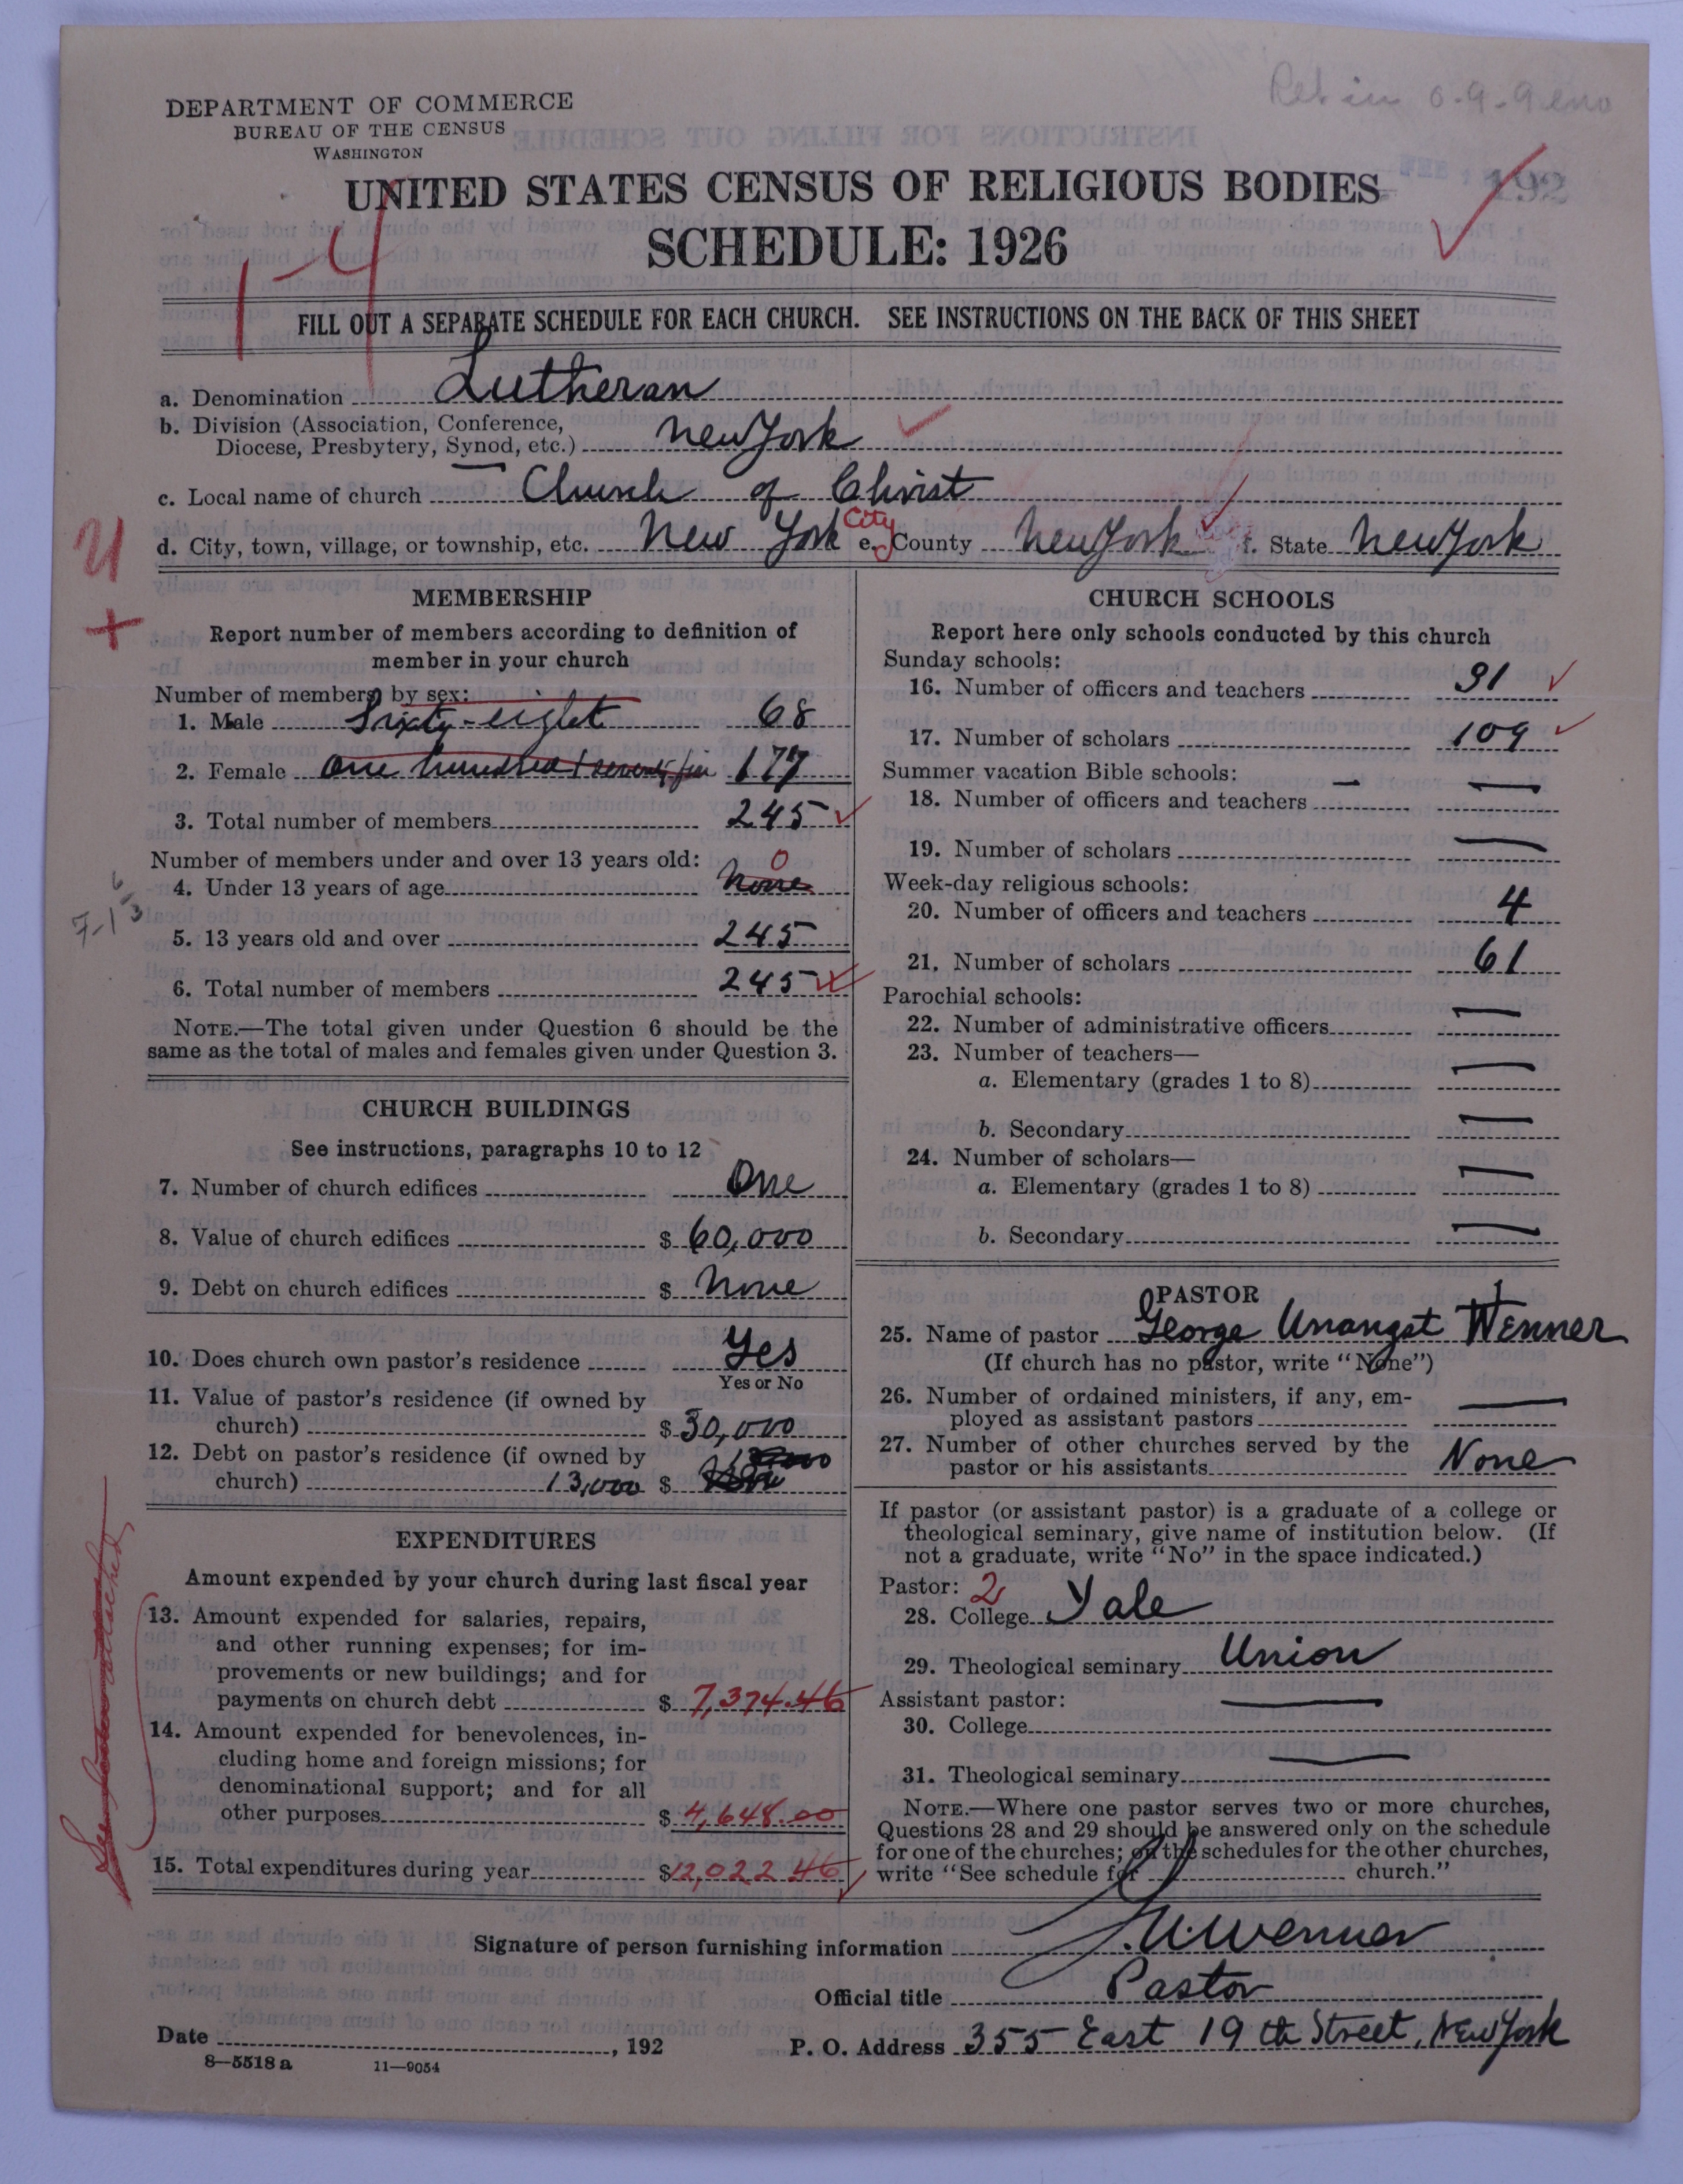 Ret in 6-9-9
DEPARTMENT OF COMMERCE
BUREAU OF THE CENSUS
WASHINGTON
UNITED STATES CENSUS OF RELIGIOUS BODIES
192
SCHEDULE: 1926
1-4
FILL OUT A SEPARATE SCHEDULE FOR EACH CHURCH. SEE INSTRUCTIONS ON THE BACK OF THIS SHEET
a. Denomination Lutheran
b. Division (Association, Conference,
Diocese, Presbytery, Synod, etc.) New York
c. Local name of church Church of Christ
d. City, town, village, or township, etc. New York City e. County New York f. State New York
U
+
MEMBERSHIP
Report number of members according to definition of
member in your church
Number of members by sex:
1. Male Sixty-eight 68
2. Female One hundred 177
3. Total number of members 245
Number of members under and over 13 years old:
0
4. Under 13 years of age None
5. 13 years old and over 245
6. Total number of members 245
NOTE.—The total given under Question 6 should be the
same as the total of males and females given under Question 3.
CHURCH BUILDINGS
See instructions, paragraphs 10 to 12
7. Number of church edifices One
8. Value of church edifices $ 60,000
9. Debt on church edifices $ None
10. Does church own pastor's residence Yes
Yes or No
11. Value of pastor's residence (if owned by
church) $ 30,000
12. Debt on pastor's residence (if owned by
church) 13,000 $
EXPENDITURES
Amount expended by your church during last fiscal year
13. Amount expended for salaries, repairs,
and other running expenses; for im-
provements or new buildings; and for
payments on church debt $ 7,374.46
14. Amount expended for benevolences, in-
cluding home and foreign missions; for
denominational support; and for all
other purposes $ 4,648.00
15. Total expenditures during year $12,022 46
CHURCH SCHOOLS
Report here only schools conducted by this church
Sunday schools:
16. Number of officers and teachers 31
17. Number of scholars 109
Summer vacation Bible schools: —
18. Number of officers and teachers —
19. Number of scholars —
Week-day religious schools:
20. Number of officers and teachers 4
21. Number of scholars 61
Parochial schools:
22. Number of administrative officers —
23. Number of teachers—
a. Elementary (grades 1 to 8) —
b. Secondary —
24. Number of scholars—
a. Elementary (grades 1 to 8) —
b. Secondary —
PASTOR
25. Name of pastor George Unangst Wenner
(If church has no pastor, write "None")
26. Number of ordained ministers, if any, em-
ployed as assistant pastors —
27. Number of other churches served by the
pastor or his assistants None
If pastor (or assistant pastor) is a graduate of a college or
theological seminary, give name of institution below. (If
not a graduate, write "No" in the space indicated.)
Pastor: 2
28. College Yale
29. Theological seminary Union
Assistant pastor: —
30. College
31. Theological seminary —
NOTE.—Where one pastor serves two or more churches,
Questions 28 and 29 should be answered only on the schedule
for one of the churches; on the schedules for the other churches,
write "See schedule for church."
Signature of person furnishing information G. U. Wenner
Official title Pastor
Date , 192
P. O. Address 355 East 19th Street, New York
8—5518 a 11—9054